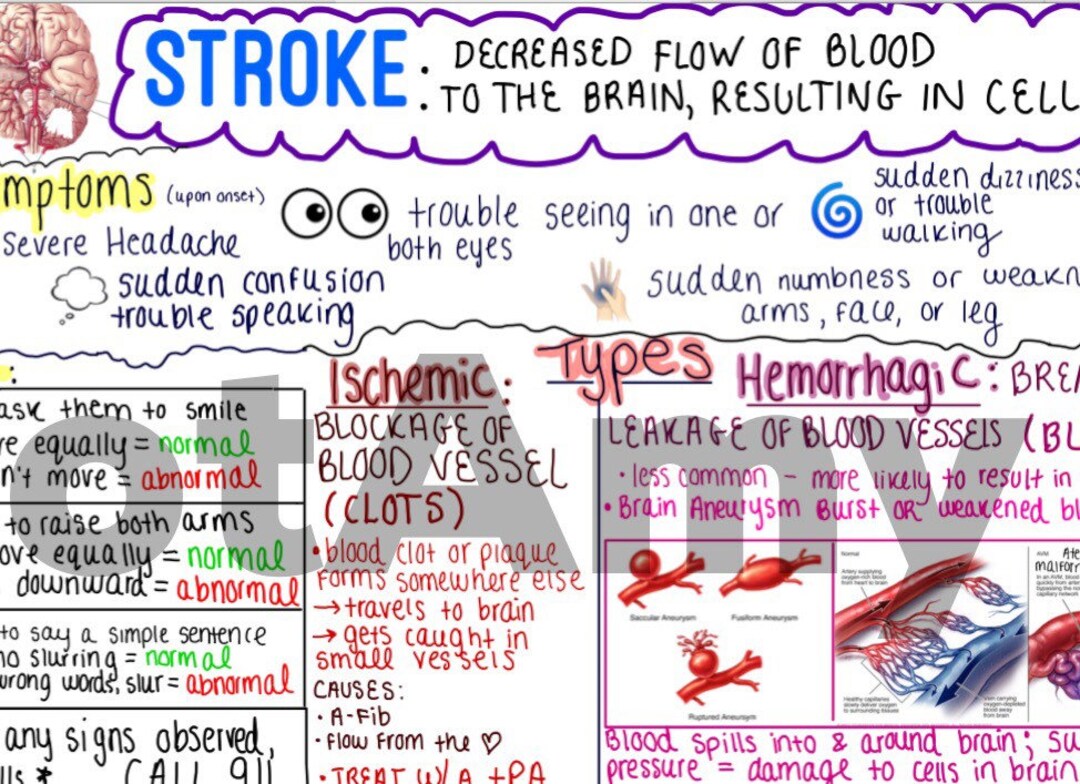 STROKE: DECREASED FLOW OF BLOOD
TO THE BRAIN, RESULTING IN CELL
mptoms (upon onset)
Severe Headache
sudden confusion
trouble speaking
trouble seeing in one or
both eyes
sudden dizziness
or trouble
walking
sudden numbness or weakn
arms, face, or leg
Types
:
ask them to smile
re equally = normal
n't move = abnormal
to raise both arms
ove equally = normal
downward = abnormal
to say a simple sentence
no slurring = normal
wrong words, slur = abnormal
any signs observed,
lls * CALL 911
Ischemic:
BLOCKAGE OF
BLOOD VESSEL
(CLOTS)
• blood clot or plaque
forms somewhere else
→ travels to brain
→ gets caught in
small vessels
CAUSES:
• A-Fib
• Flow From the ♡
• TREAT W/ A tPA
Hemorrhagic: BREA
LEAKAGE OF BLOOD VESSELS (BL
• less common - more likely to result in
• Brain Aneurysm Burst OR weakened bl
Saccular Aneurysm
Fusiform Aneurysm
Ruptured Aneurysm
Normal
Artery supplying
oxygen-rich blood
from heart to brain
Healthy capillaries
slowly deliver oxygen
to surrounding tissues
Vein carrying
oxygen-depleted
blood away
from brain
AVM
Ate
malform
In an AVM, blood
quickly from arte
bypassing the no
capillary network
Blood spills into & around brain; su
pressure = damage to cells in brain
otAmy